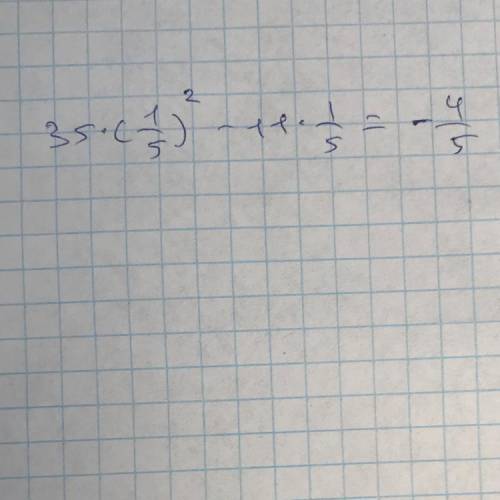 35·(1/5)² - 11·1/5 = -4/5